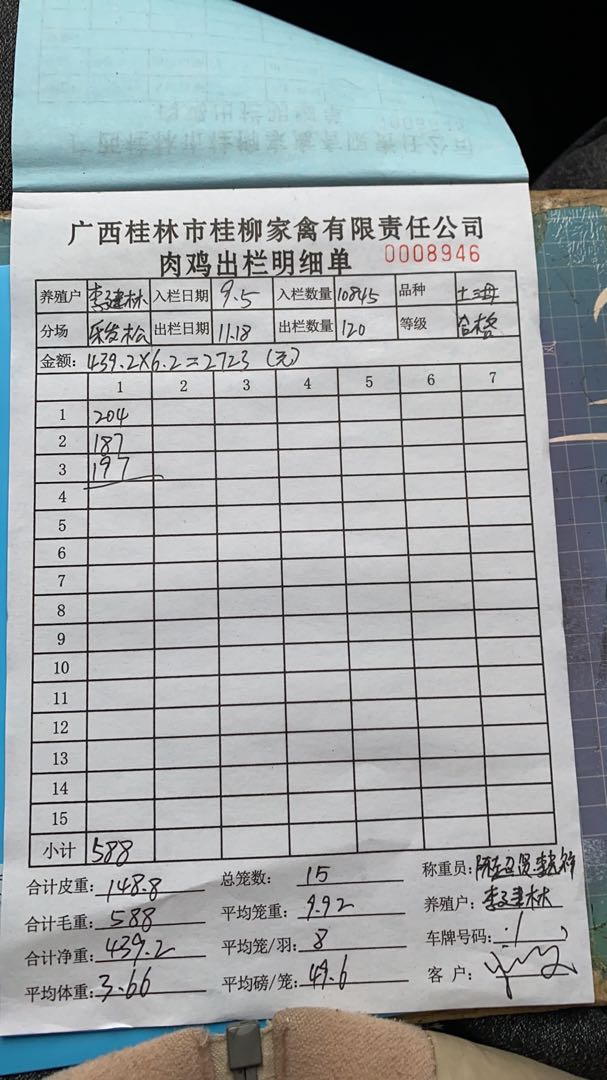 广西桂林市桂柳家禽有限责任公司
肉鸡出栏明细单 0008946
养殖户 李建林 入栏日期 9.5 入栏数量 10845 品种 土2母
分场 出栏日期 11.18 出栏数量 120 等级 合格
金额: 439.2×6.2=2723 (元)
1 2 3 4 5 6 7
1 204
2 187
3 197
4
5
6
7
8
9
10
11
12
13
14
15
小计 588
合计皮重: 148.8 总笼数: 15 称重员:
合计毛重: 588 平均笼重: 9.92 养殖户: 李建林
合计净重: 439.2 平均笼/羽: 8 车牌号码:
平均体重: 3.66 平均磅/笼: 49.6 客户: